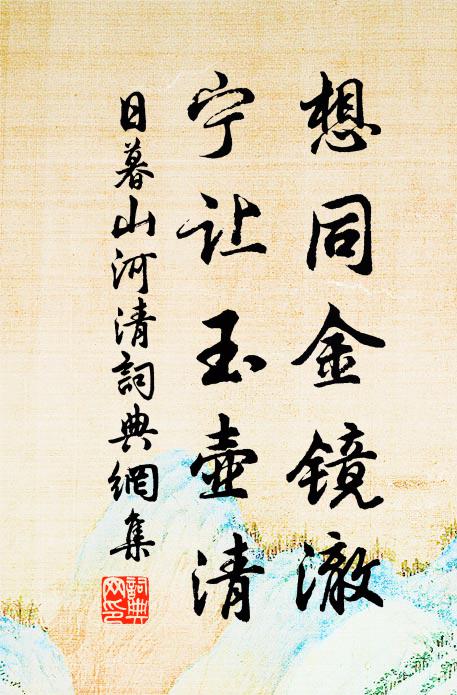 想同金镜澈
宁让玉壶清
日暮山河清詞典網集